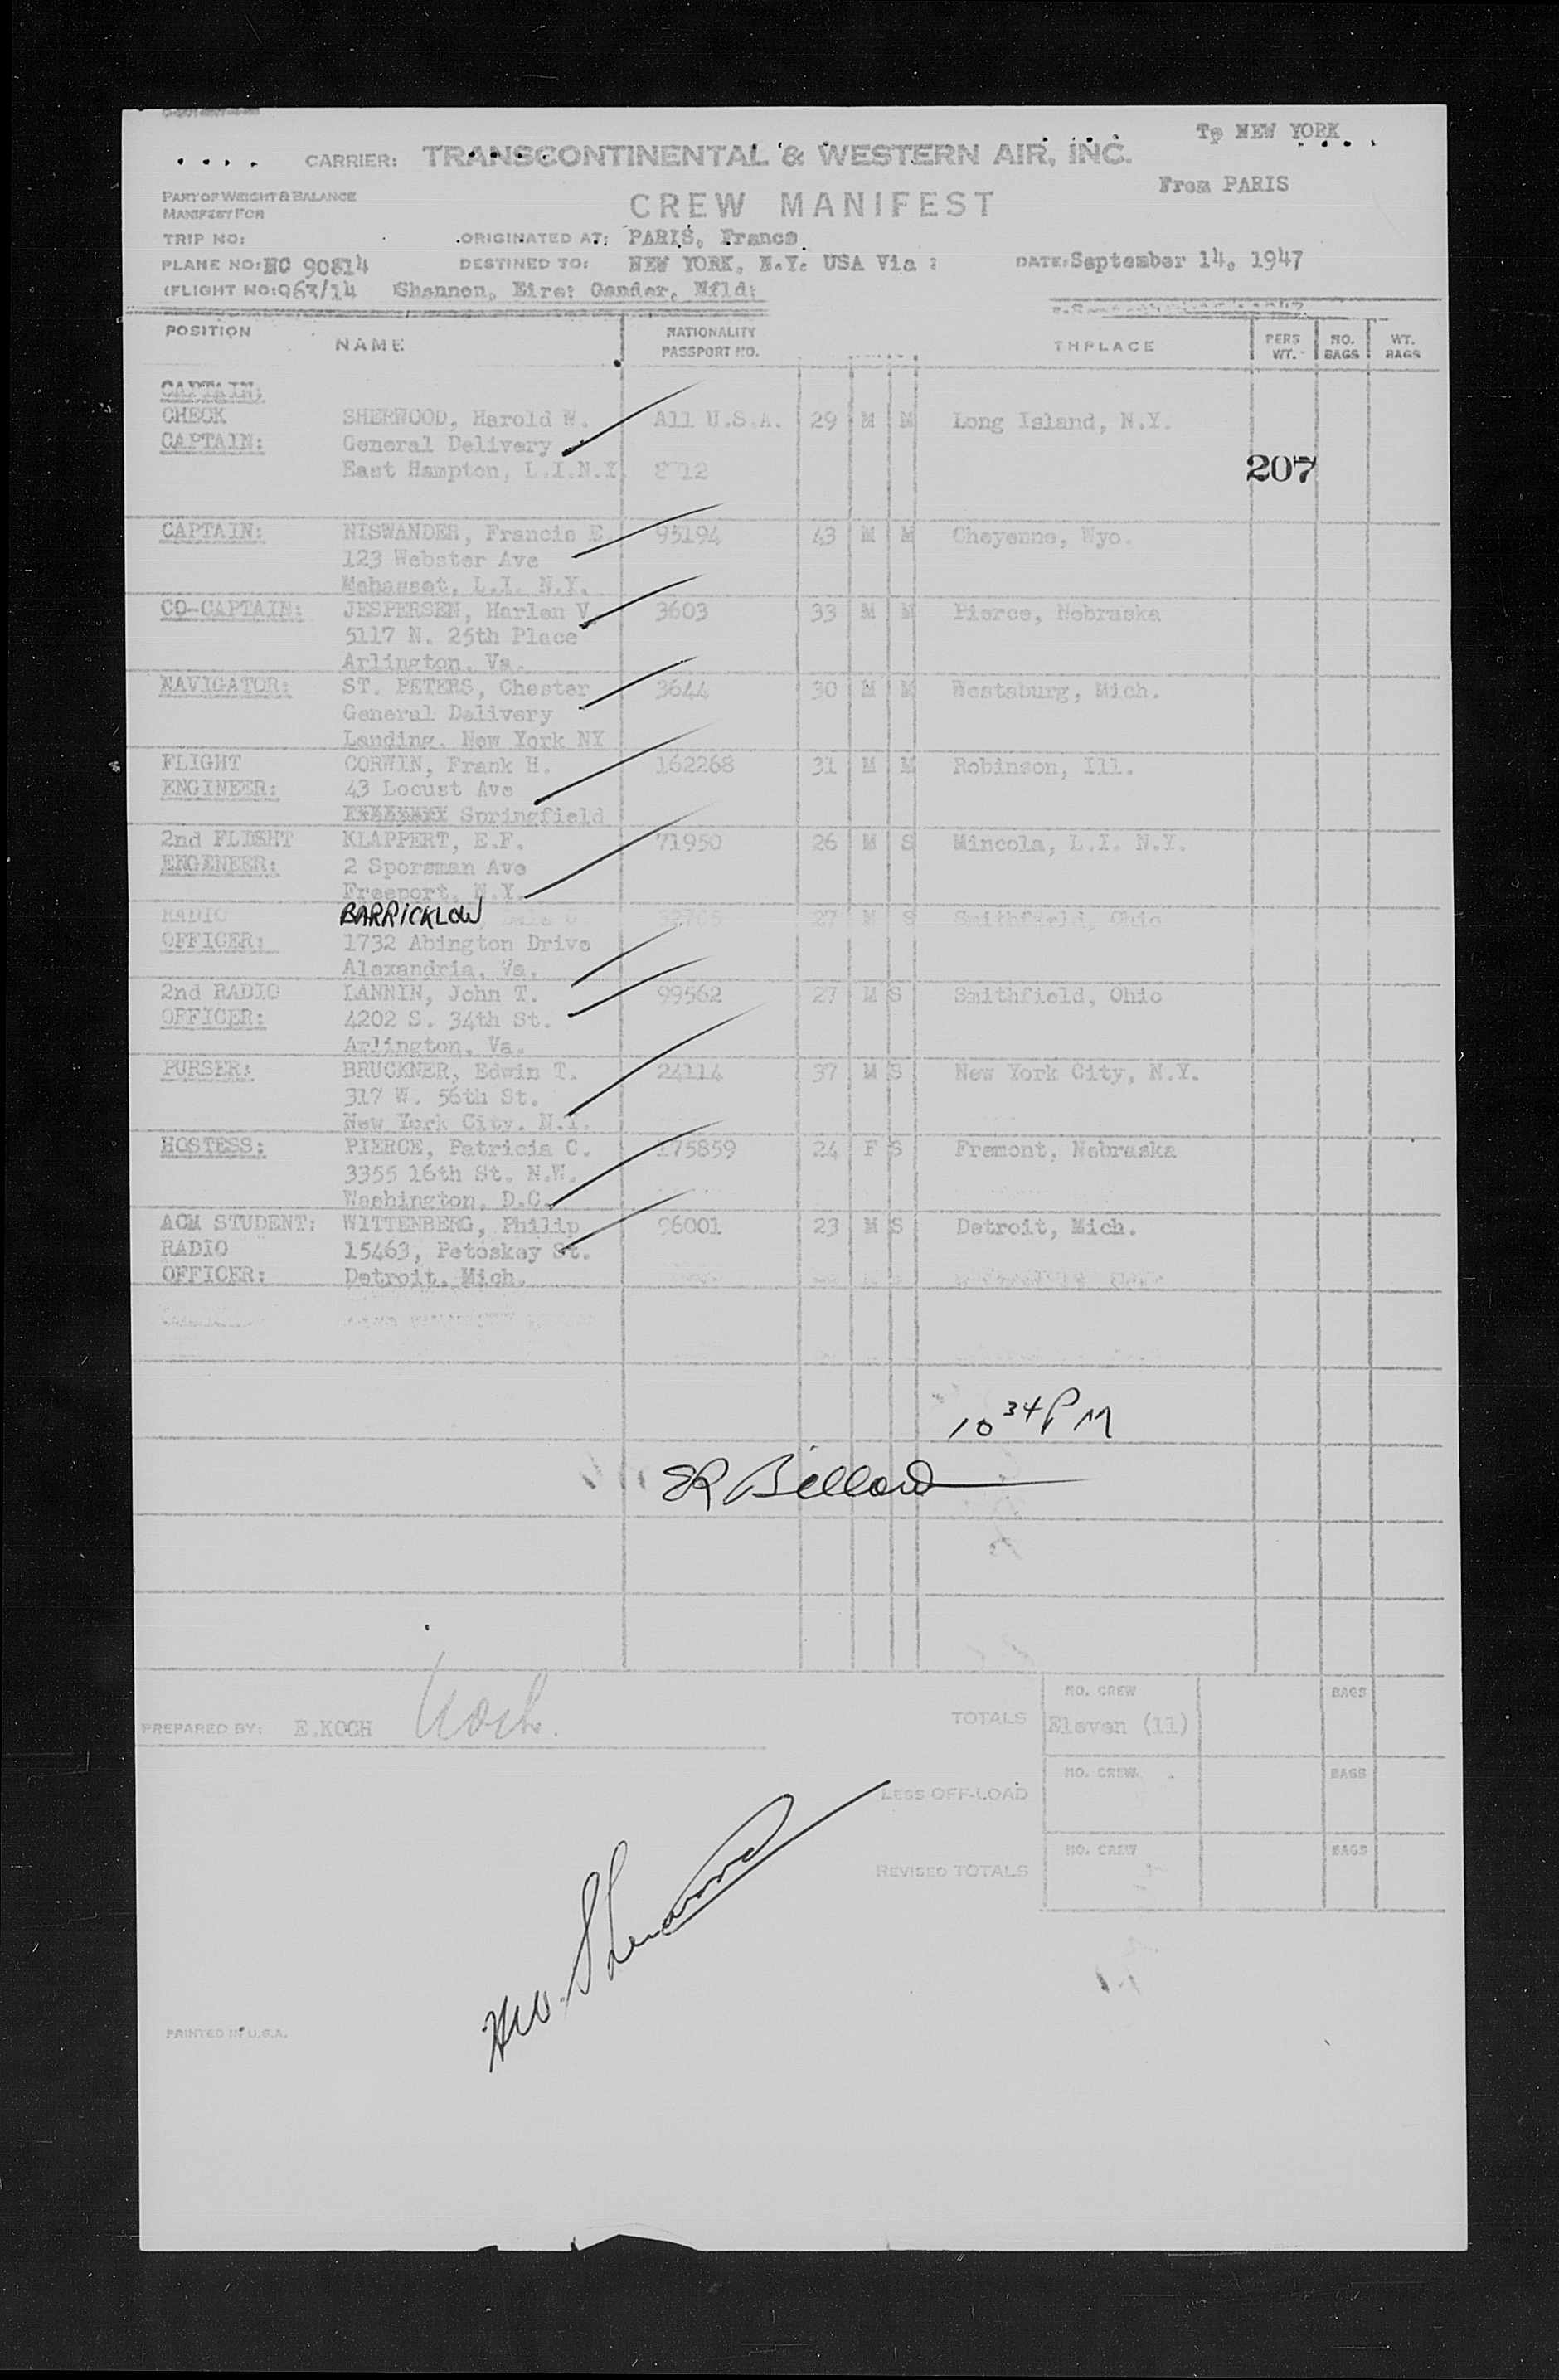 To NEW YORK
CARRIER: TRANSCONTINENTAL & WESTERN AIR, INC.
From PARIS
PART OF WEIGHT & BALANCE
MANIFEST FOR
CREW MANIFEST
TRIP NO: ORIGINATED AT: PARIS, France
PLANE NO: NC 90814 DESTINED TO: NEW YORK, N.Y. USA Via : DATE: September 14, 1947
(FLIGHT NO: 963/14 Shannon, Eire: Gander, Nfld:
POSITION NAME NATIONALITY PASSPORT NO. THPLACE PERS WT. NO. BAGS WT. BAGS
CAPTAIN:
CHECK SHERWOOD, Harold W. All U.S.A. 29 M M Long Island, N.Y.
CAPTAIN: General Delivery
East Hampton, L.I.N.Y. 207
CAPTAIN: NISWANDER, Francis E. 95194 43 M M Cheyenne, Wyo.
123 Webster Ave
Mahasset, L.I. N.Y.
CO-CAPTAIN: JESPERSEN, Harlen V. 3603 33 M M Pierce, Nebraska
5117 N. 25th Place
Arlington, Va.
NAVIGATOR: ST. PETERS, Chester 3644 30 M M Westaburg, Mich.
General Delivery
Landing, New York NY
FLIGHT CORWIN, Frank H. 162268 31 M M Robinson, Ill.
ENGINEER: 43 Locust Ave
Springfield
2nd FLIGHT KLAPPERT, E.F. 71950 26 M S Mincola, L.I. N.Y.
ENGENEER: 2 Sporsman Ave
Freeport, N.Y.
RADIO BARRICKLOW 27 M S Smithfield, Ohio
OFFICER: 1732 Abington Drive
Alexandria, Va.
2nd RADIO LANNIN, John T. 99562 27 M S Smithfield, Ohio
OFFICER: 4202 S. 34th St.
Arlington, Va.
PURSER: BRUCKNER, Edwin T. 24114 37 M S New York City, N.Y.
317 W. 56th St.
New York City, N.Y.
HOSTESS: PIERCE, Patricia C. 175859 24 F S Fremont, Nebraska
3355 16th St. N.W.
Washington, D.C.
ACM STUDENT: WITTENBERG, Philip 96001 23 M S Detroit, Mich.
RADIO 15463, Petoskey St.
OFFICER: Detroit, Mich.
10 34 PM
SR Billard
NO. CREW BAGS
PREPARED BY: E.KOCH Koch. TOTALS Eleven (11)
NO. CREW BAGS
LESS OFF-LOAD
NO. CREW BAGS
REVISED TOTALS
HW. Sherwood
PRINTED IN U.S.A.